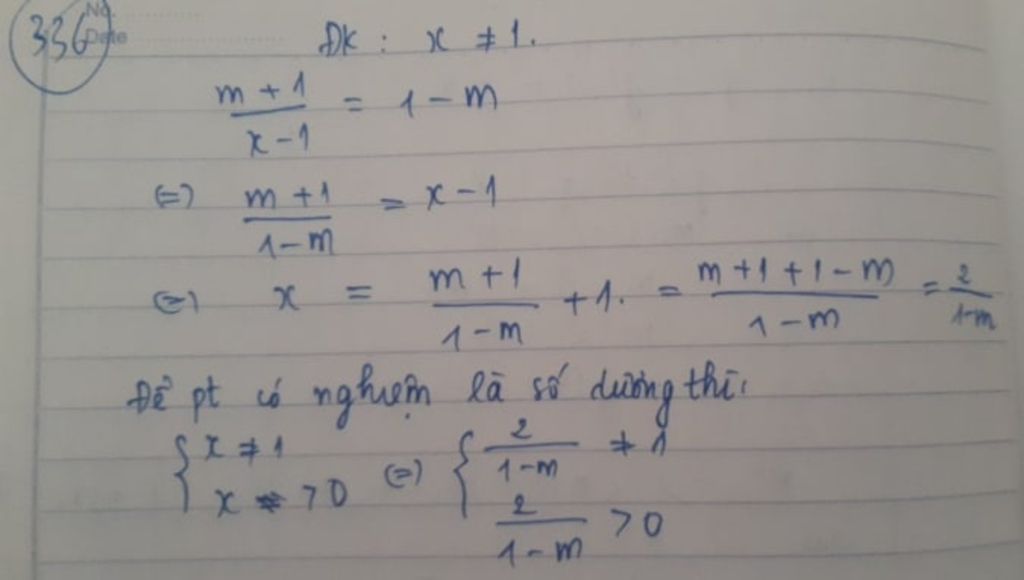 336
No.
Date
ĐK : x ≠ 1.
m + 1 / x - 1 = 1 - m
(=) m + 1 / 1 - m = x - 1
(=) x = m + 1 / 1 - m + 1. = m + 1 + 1 - m / 1 - m = 2 / 1 - m
Để pt có nghiệm là số dương thì:
{ x ≠ 1 (=) { 2 / 1 - m ≠ 1
x > 0 2 / 1 - m > 0